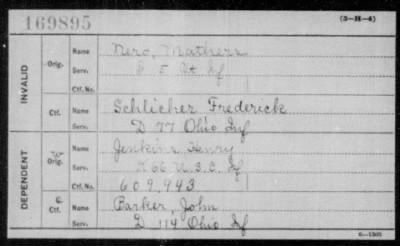 169895
(3-H-4)
INVALID
Orig.
Name Nero, Mathers
Serv. S 5 Vt Inf
Ctf. No.
Ctf.
Name Schlicher Frederick
Serv. D 77 Ohio Inf
DEPENDENT
Orig.
Name Jenkins Henry
Serv. K 66 U.S.C. Inf
Ctf. No. 609,943
Ctf.
Name Barker, John
Serv. D 114 Ohio Inf